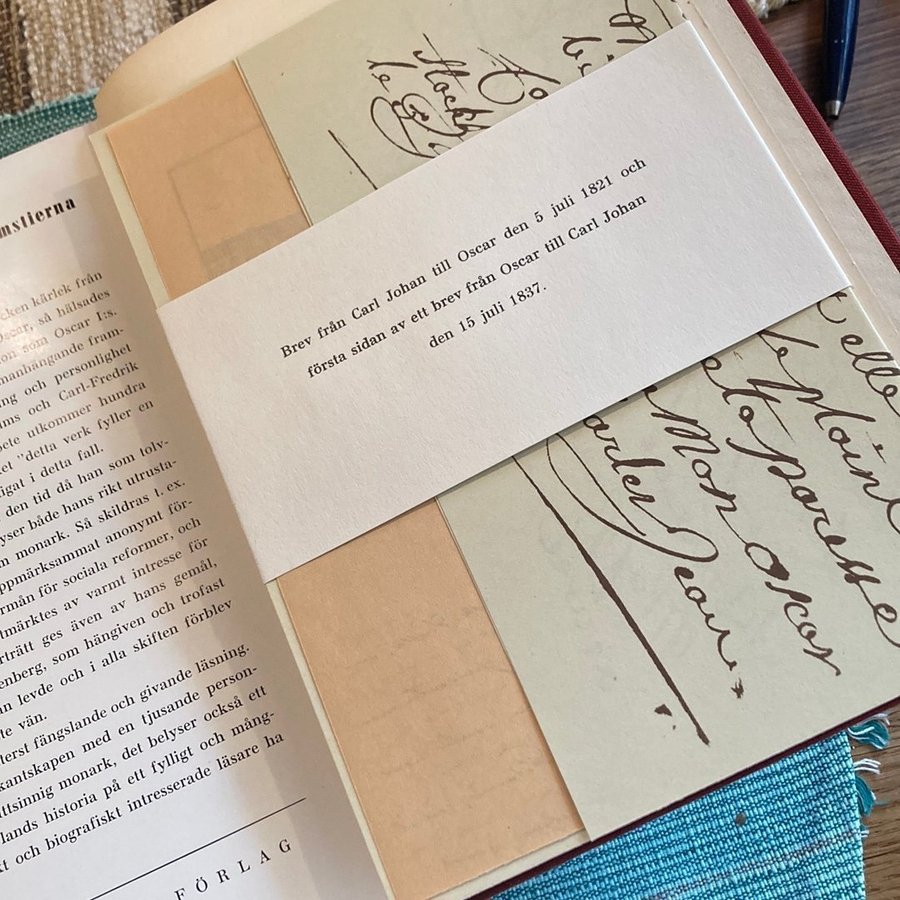 mstierna
cken kärlek från
Oscar, så hälsades
on som Oscar I:s.
manhängande fram-
ng och personlighet
ms och Carl-Fredrik
ete utkommer hundra
et "detta verk fyller en
igat i detta fall.
den tid då han som tolv-
yser både hans rikt utrusta-
m monark. Så skildras t. ex.
ppmärksammat anonymt för-
rmån för sociala reformer, och
tmärktes av varmt intresse för
rträtt ges även av hans gemål,
enberg, som hängiven och trofast
n levde och i alla skiften förblev
te vän.
terst fängslande och givande läsning.
kantskapen med en tjusande person-
ttsinnig monark, det belyser också ett
lands historia på ett fylligt och mång-
kt och biografiskt intresserade läsare ha
FÖRLAG
Brev från Carl Johan till Oscar den 5 juli 1821 och
första sidan av ett brev från Oscar till Carl Johan
den 15 juli 1837.
elle
Mon Oscar
Jean